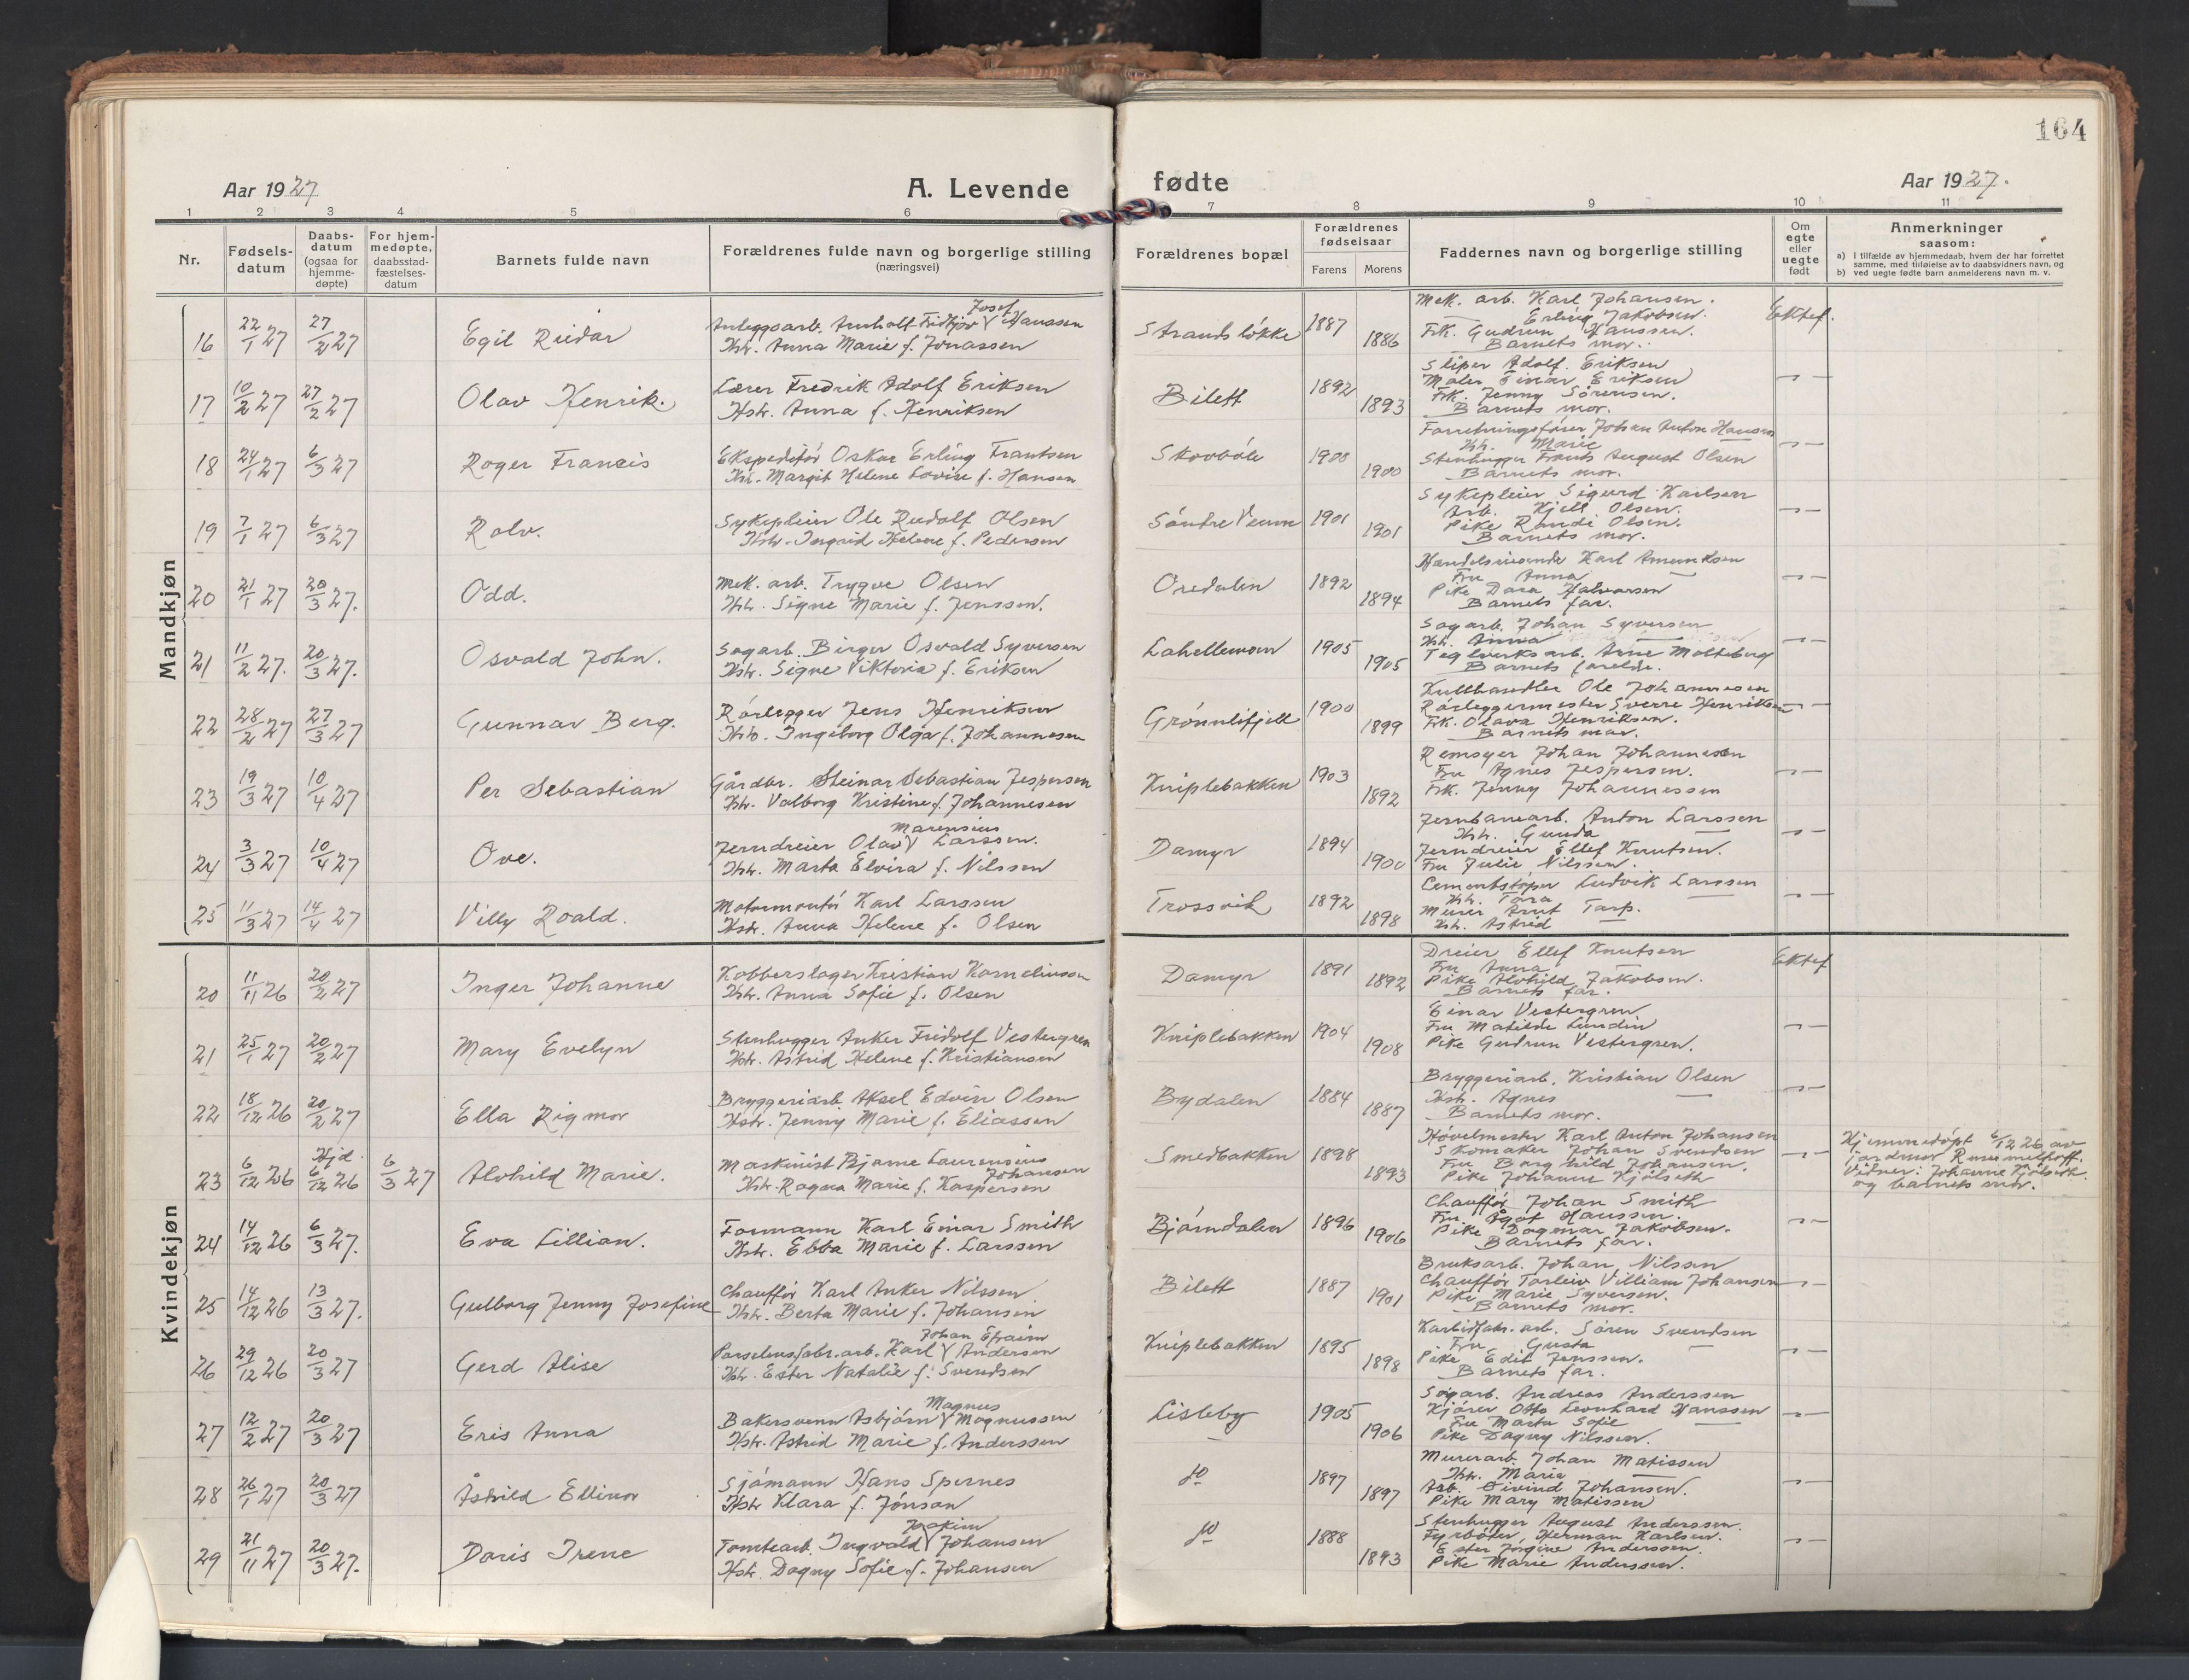 164
Aar 1927
A. Levende
fødte
Aar 1927.
1 2 3 4 5 6 7 8 9 10 11
Nr.
Fødsels-
datum
Daabs-
datum
(ogsaa for
hjemme-
døpte)
For hjem-
medøpte,
daabsstad-
fæstelses-
datum
Barnets fulde navn
Forældrenes fulde navn og borgerlige stilling
(næringsvei)
Forældrenes bopæl
Forældrenes
fødselsaar
Farens Morens
Faddernes navn og borgerlige stilling
Om
egte
eller
uegte
født
Anmerkninger
saasom:
a) I tilfælde av hjemmedaab, hvem der har forrettet
samme, med tilføielse av to daabsvidners navn, og
b) ved uegte fødte barn anmelderens navn m. v.
Mandkjøn
16 22/1 27 27/2 27 Egil Reidar
Josef
Anleggsarb. Arnholt Fridtjov V Hanssen
Hstr. Anna Marie f. Jonassen
Strandsløkke 1887 1886
Mek. arb. Karl Johansen.
— Erling Jakobsen.
Frk. Gudrun Hanssen.
Barnets mor.
Ektef.
17 10/2 27 27/2 27 Olav Henrik.
Lærer Fredrik Adolf Eriksen
Hstr. Anna f. Henriksen
Bilett 1892 1893
Sliper Adolf Eriksen
Maler Einar Eriksen
Frk. Jenny Sørensen.
Barnets mor.
— " —
18 24/1 27 6/3 27 Roger Francis
Ekspeditør Oskar Erling Frantsen
Hstr. Margit Helene Lovise f. Hansen
Skovbøle 1900 1900
Forretningsfører Johan Anton Hansen
Hstr. Marie —
Stenhugger Frants August Olsen
Barnets mor.
— " —
19 7/1 27 6/3 27 Rolv.
Sykepleier Ole Rudolf Olsen
Hstr. Ingrid Helene f. Pedersen
Søndre Veum 1901 1901
Sykepleier Sigurd Karlsen
Arb. Kjell Olsen.
Pike Randi Olsen.
Barnets mor.
— " —
20 21/1 27 20/3 27. Odd.
Mek. arb. Trygve Olsen
Hstr. Signe Marie f. Jenssen.
Oredalen 1892 1894
Handelsreisende Karl Amundsen
Fru Anna —
Pike Dora Halvorsen
Barnets far.
— " —
21 11/2 27. 20/3 27. Osvald John.
Sagarb. Birger Osvald Syversen
Hstr. Signe Viktoria f. Eriksen
Lahellemoen 1905 1905
Sagarb. Johan Syversen
Hstr. Anna —
Teglverksarb. Arne Molteberg
Barnets forelde.
— " —
22 28/2 27 27/3 27 Gunnar Berg.
Rørlegger Jens Henriksen
Hstr. Ingeborg Olga f. Johannesen
Grønnlifjell 1900 1899
Kullhandler Ole Johannesen
Rørleggermester Sverre Henriksen
Frk. Olava Henriksen.
Barnets mor.
— " —
23 19/3 27 10/4 27 Per Sebastian
Gårdbr. Steinar Sebastian Jespersen
Hstr. Valborg Kristine f. Johannesen
Kniplebakken 1903 1892
Remsyer Johan Johannesen
Fru Agnes Jespersen.
Frk. Jenny Johannessen
— " —
24 3/3 27 10/4 27 Ove.
Marensius
Jerndreier Olav V Larssen.
Hstr. Marta Elvira f. Nilssen
Damyr 1894 1900
Jernbanearb. Anton Larssen
Hstr. Gunda —
Jerndreier Ellef Knutsen.
Fru Julie Nilssen.
— " —
25 11/3 27 14/4 27 Villy Roald.
Motormontør Karl Larssen
Hstr. Anna Helene f. Olsen
Trossvik 1892 1898
Cementstøper Ludvik Larssen
Hstr. Tora —
Murer Arnt Tarp.
Hstr. Astrid —
— " —
Kvindekjøn
20 11/11 26 20/2 27 Inger Johanne
Kobberslager Kristian Kornelinson
Hstr. Anna Sofie f. Olsen
Damyr 1891 1892
Dreier Ellef Knutsen
Fru Anna —
Pike Alvhild Jakobsen.
Barnets far.
Ektef
21 25/1 27 20/2 27 Mary Evelyn
Stenhugger Anker Fridolf Vestergren
Hstr. Astrid Helene f. Kristiansen
Kniplebakken 1904 1908
Einar Vestergren
Fru Matilde Lundin
Pike Gudrun Vestergren.
— " —
22 18/12 26 20/2 27 Ella Rigmor
Bryggeriarb Aksel Edvin Olsen
Hstr. Jenny Marie f. Eliassen
Bydalen 1884 1887
Bryggeriarb. Kristian Olsen
Hstr. Agnes —
Barnets mor.
— " —
23 6/12 26 Hjd. 6/12 26 6/3 27 Alvhild Marie.
Maskinist Bjarne Laurensius
Johansen
Hstr. Ragna Marie f. Kaspersen
Smedbakken 1898 1893
Høvelmester Karl Anton Johansen
Skomaker Johan Svendsen
Fru Borghild Johansen.
Pike Johanne Kjølseth
— " —
Hjemmedøpt 6/12 26 av
jordmor
Vidner: Johanne Kjølseth
og barnets mor.
24 14/12 26 6/3 27. Eva Lillian.
Formann Karl Einar Smith
Hstr. Ebba Marie f. Larssen
Bjørndalen 1896 1906
Chauffør Johan Smith
Fru Ågot Hanssen.
Pike Dagmar Jakobsen.
Barnets far.
— " —
25 14/12 26 13/3 27. Gulborg Jenny Josefine
Chauffør Karl Anker Nilssen.
Hstr. Berta Marie f. Johansen
Bilett 1887 1901
Bruksarb. Johan Nilssen
Chauffør Torleiv Villiam Johansen
Pike Marie Syversen.
Barnets mor.
— " —
26 29/12 26 20/3 27 Gerd Alise
Johan Efraim
Porselensfabr.arb. Karl V Andersen
Hstr. Ester Natalie f. Svendsen
Kniplebakken 1895 1898
Karbidfabr. arb. Søren Svendsen
Fru Gusta —
Pike Edit Jenssen.
Barnets far.
— " —
27 12/2 27 20/3 27 Eris Anna
Magnus
Bakersvenn Asbjørn V Magnussen
Hstr. Astrid Marie f. Anderssen
Lisleby 1905 1906
Sagarb. Andreas Anderssen
Kjører Otto Leonhard Hanssen
Fru Marta Sofie —
Pike Dagny Nilssen.
— " —
28 26/1 27 20/3 27 Åshild Ellinor
Sjømann Hans Spernes
Hstr Klara f. Jonsan
do 1897 1897
Murerarb. Johan Matissen
Hstr. Marie —
Arb. Eivind Johansen.
Pike Mary Matissen
— " —
29 21/11 27 20/3 27. Doris Irene
Joakim
Tomtearb. Ingvald V Johansen
Hstr. Dagny Sofie f. Johansen
do 1888 1893
Stenhugger August Anderssen.
Fyrbøter Herman Karlsen.
Ester Jørgine Anderssen.
Pike Marie Anderssen.
— " —